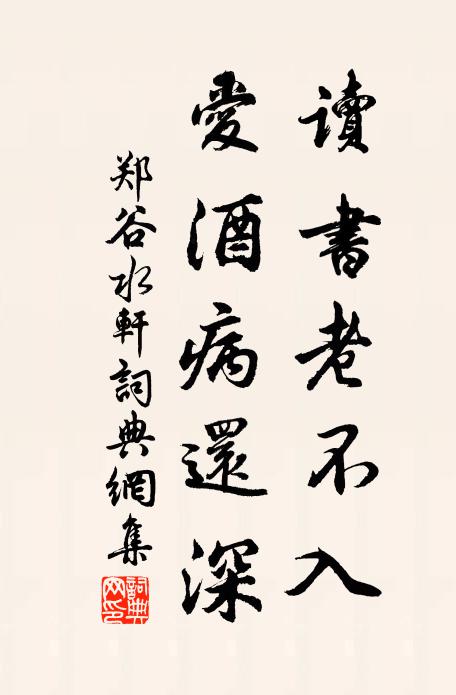 讀書老不入
愛酒病還深
郑谷水軒詞典網集